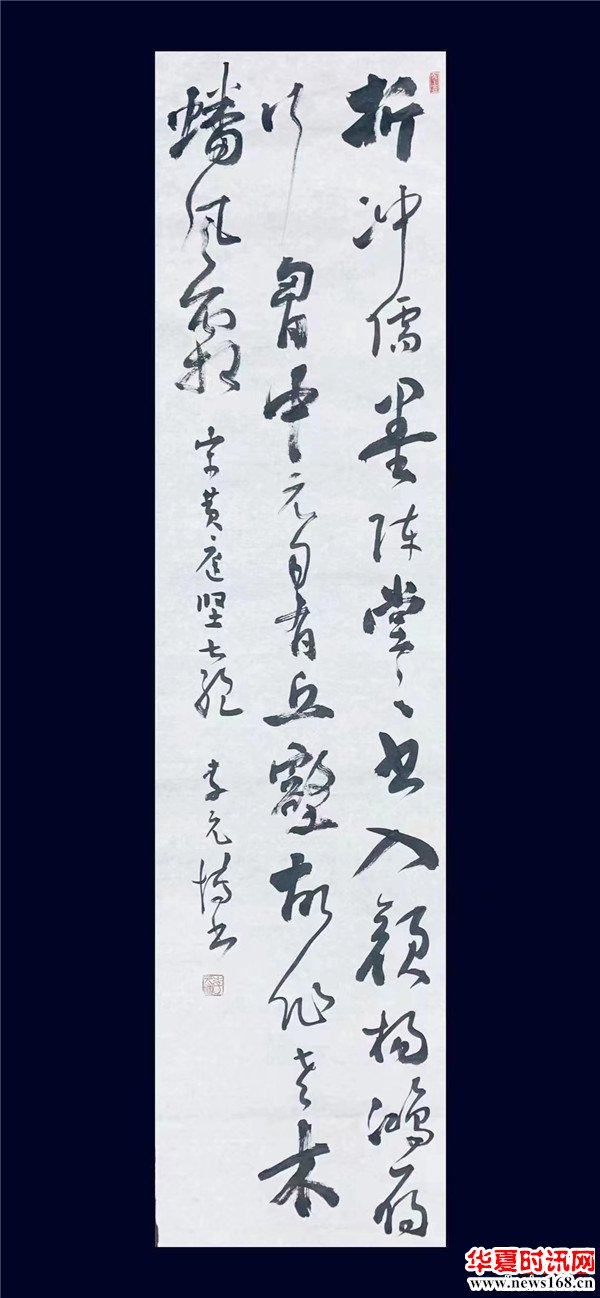 折冲儒墨阵堂〻书入颜杨鸿雁
行胷中元自有丘壑故作老木
蟠风霜
宋黄庭坚七绝 李元博书
华夏时讯网
www.news168.cn